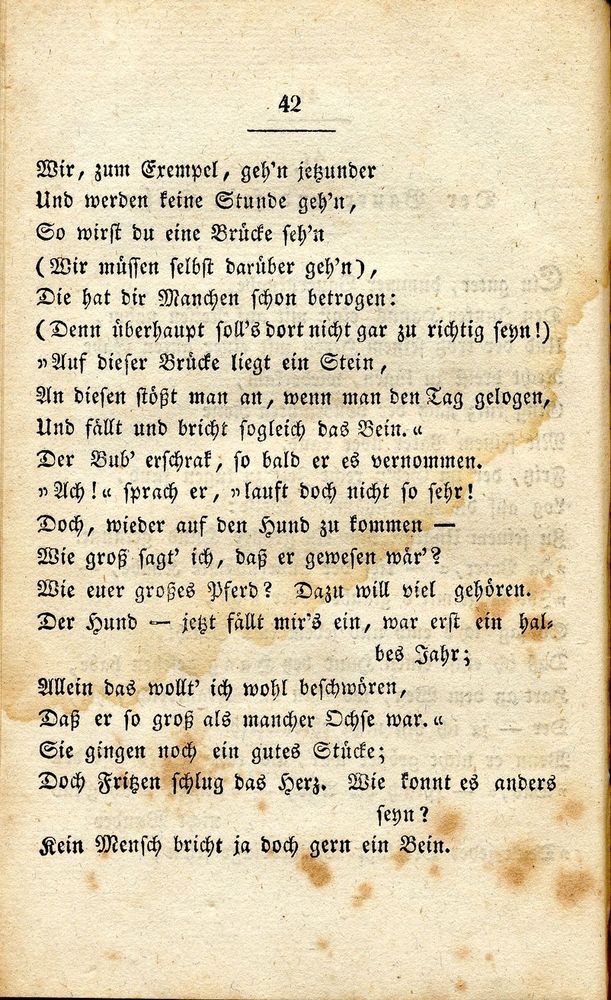 42
Wir, zum Exempel, geh'n jetzunder
Und werden keine Stunde geh'n,
So wirst du eine Brücke seh'n
(Wir müssen selbst darüber geh'n),
Die hat dir Manchen schon betrogen:
(Denn überhaupt soll's dort nicht gar zu richtig seyn!)
»Auf dieser Brücke liegt ein Stein,
An diesen stößt man an, wenn man den Tag gelogen,
Und fällt und bricht sogleich das Bein.«
Der Bub' erschrak, so bald er es vernommen.
»Ach!« sprach er, »lauft doch nicht so sehr!
Doch, wieder auf den Hund zu kommen —
Wie groß sagt' ich, daß er gewesen wär'?
Wie euer großes Pferd? Dazu will viel gehören.
Der Hund — jetzt fällt mir's ein, war erst ein hal-
bes Jahr;
Allein das wollt' ich wohl beschwören,
Daß er so groß als mancher Ochse war.«
Sie gingen noch ein gutes Stücke;
Doch Fritzen schlug das Herz. Wie konnt es anders
seyn?
Kein Mensch bricht ja doch gern ein Bein.